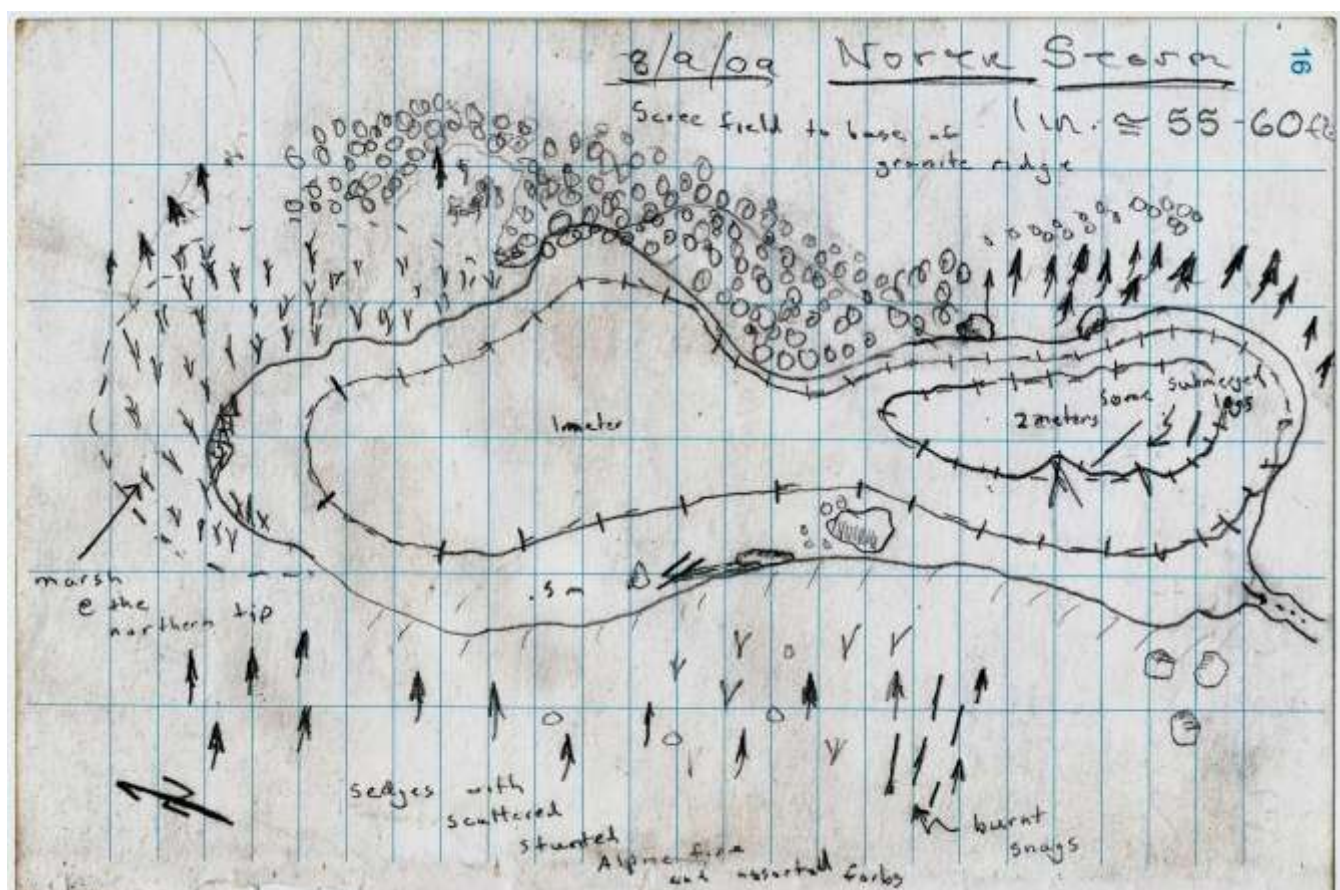 8/9/09 North Storm
16
Scree field to base of
granite ridge
1 in. ≅ 55-60ft
some submerged
logs
2 meters
1 meter
.5 m
marsh
@ the
northern tip
sedges with
scattered
stunted
Alpine firs
and assorted forbs
burnt
snags